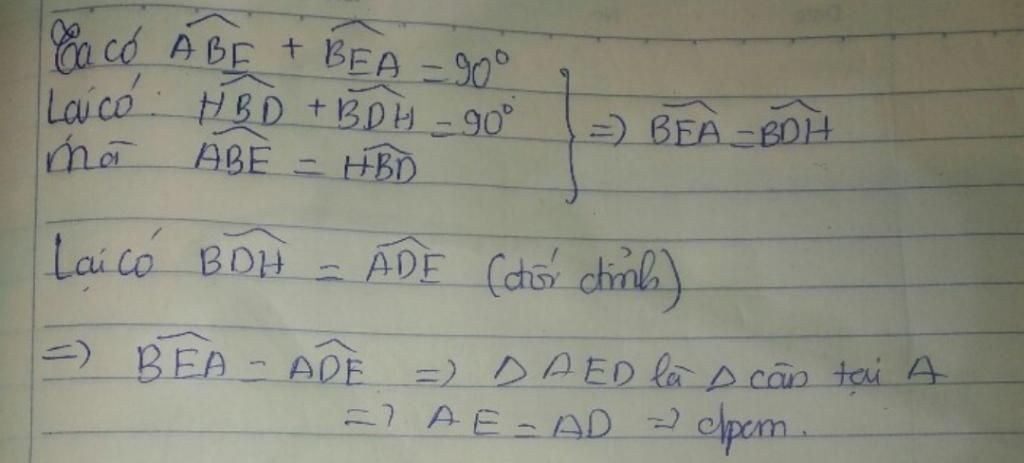 Ta có \widehat{ABE} + \widehat{BEA} = 90°
Lại có: \widehat{HBD} + \widehat{BDH} = 90° } => \widehat{BEA} = \widehat{BDH}
mà \widehat{ABE} = \widehat{HBD}
Lại có \widehat{BDH} = \widehat{ADE} (đối đỉnh)
=> \widehat{BEA} = \widehat{ADE} => Δ AED là Δ cân tại A
=> AE = AD => đpcm.